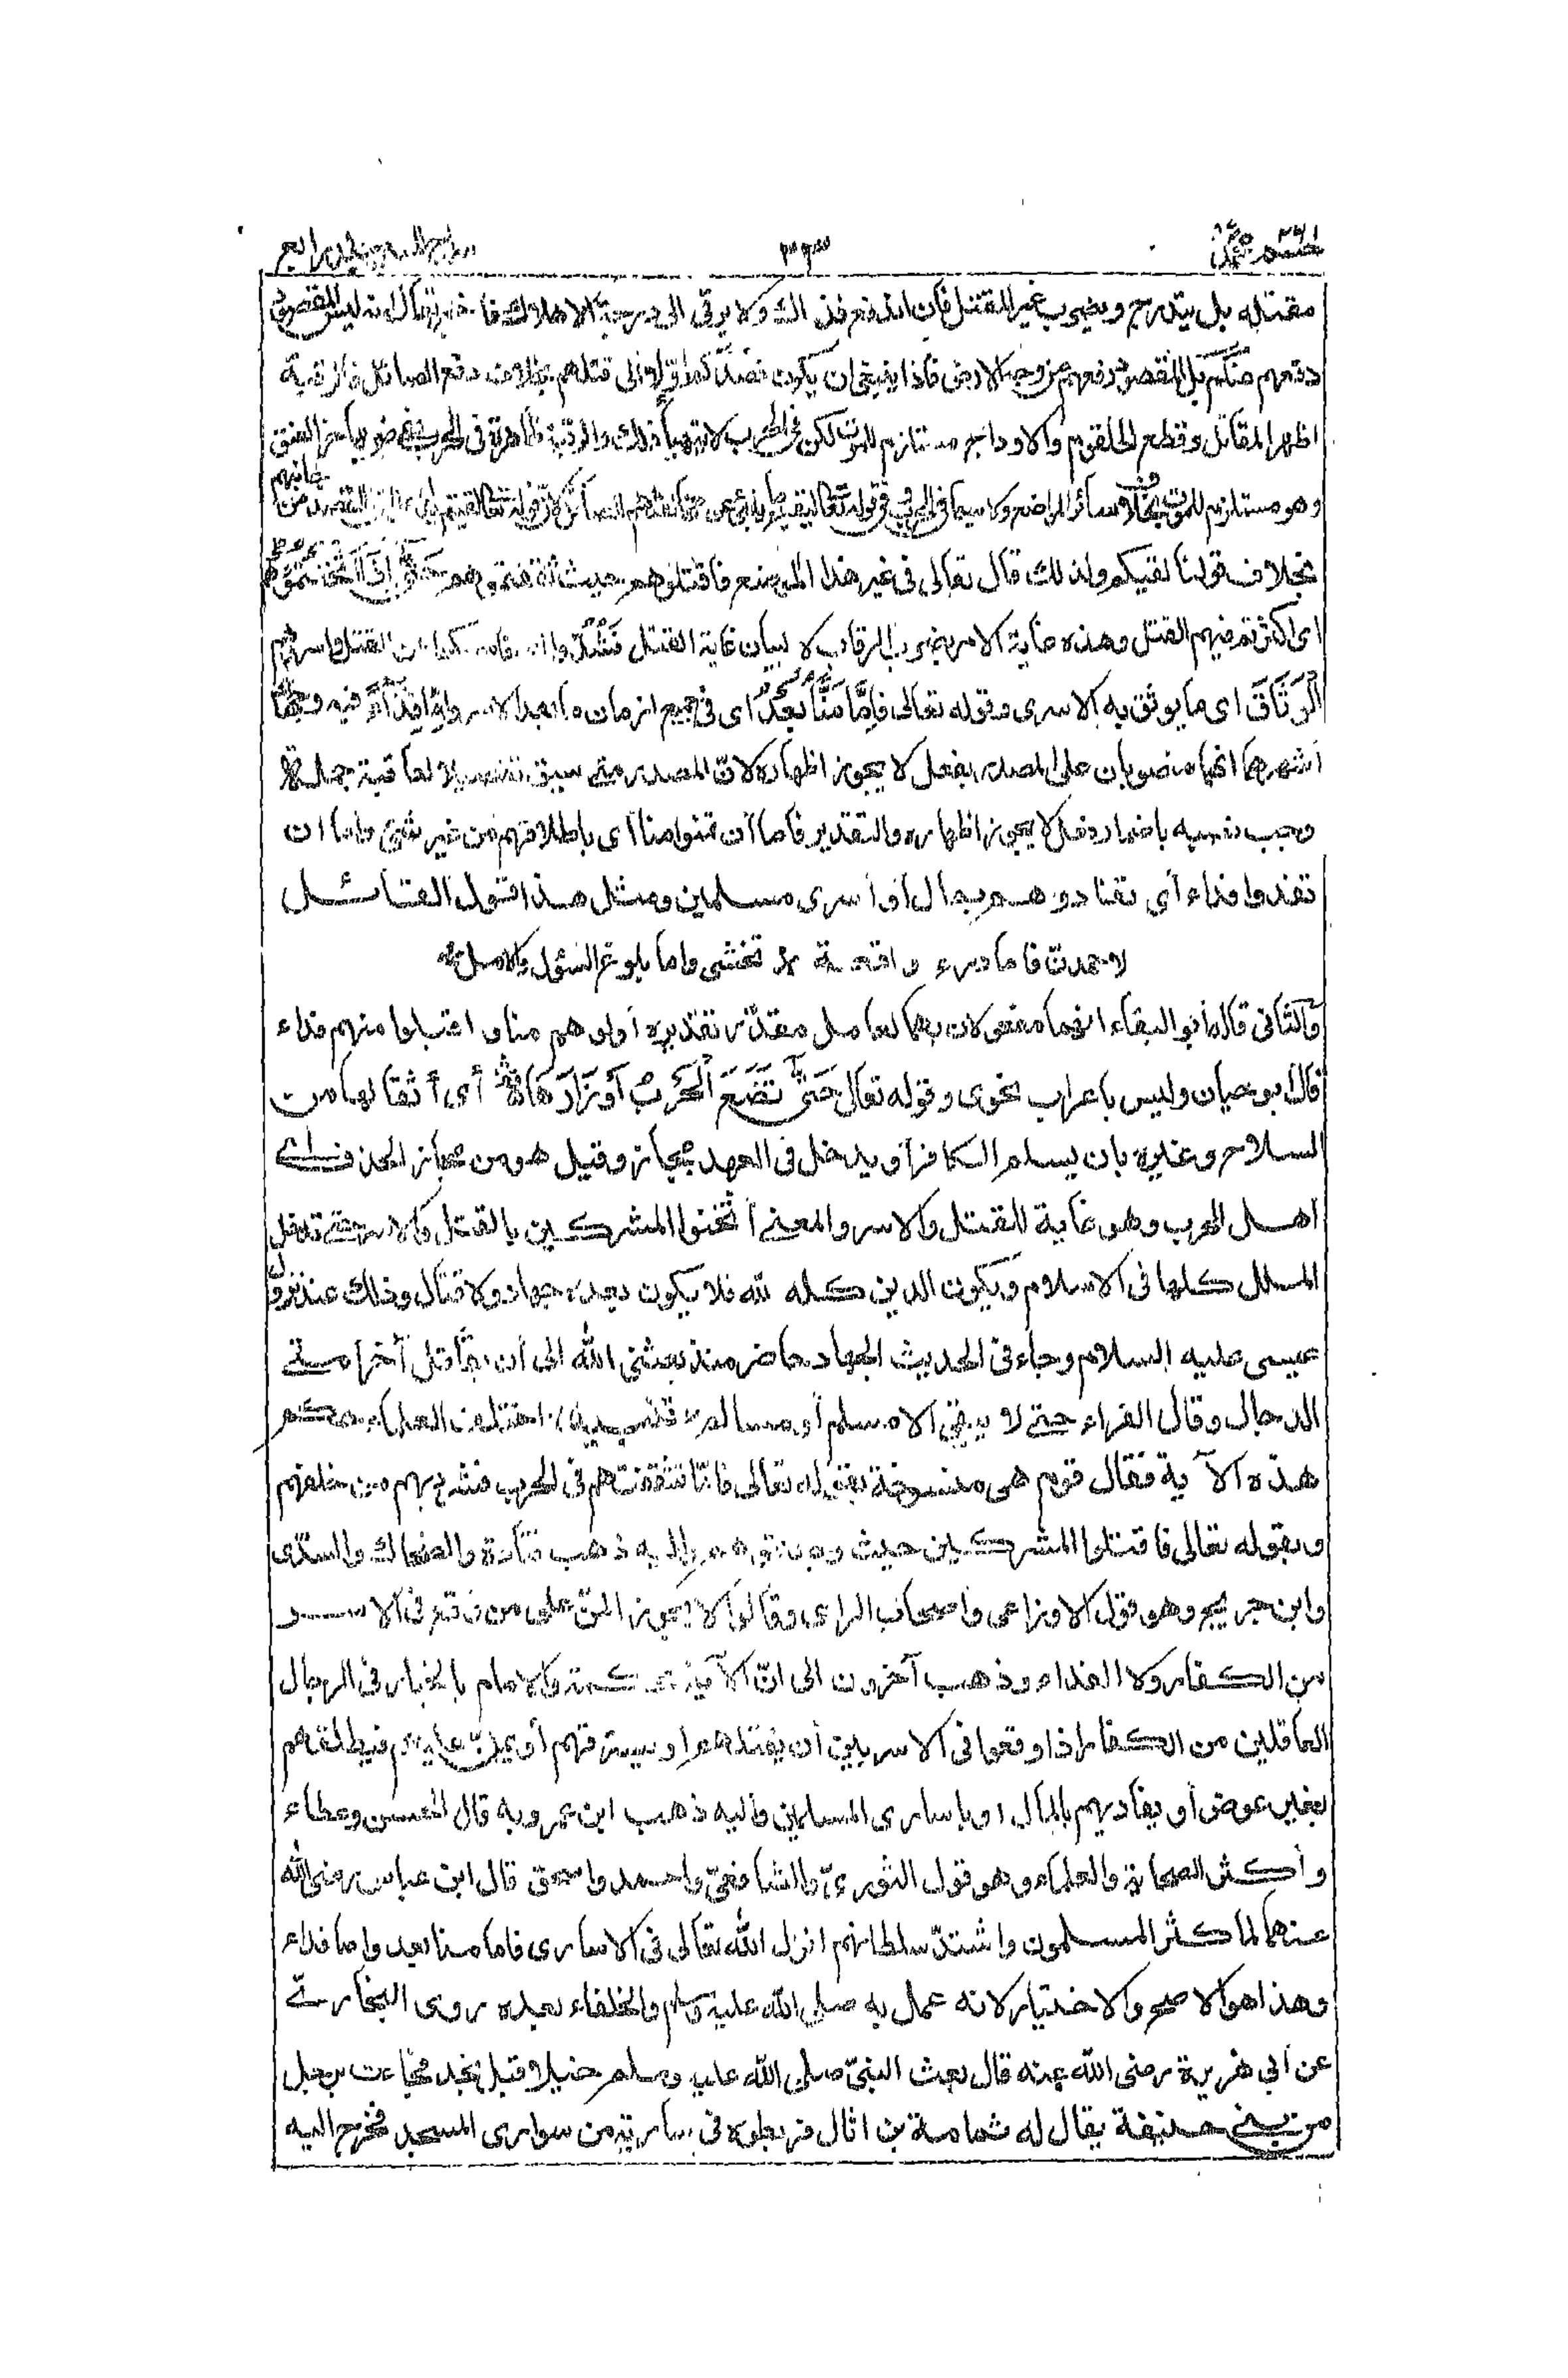 ٣٩٣
مقتله بل يتدرج ويضرب غير المقتل فان اندفع فذاك ولا يرقى الى درجة الاهلاك فاخبر تعالى انه ليس المقصود
دفعهم عنكم بل المقصود دفعهم عن وجه الارض فاذا ينبغى ان يكون قصدكم اولا الى قتلهم بخلاف دفع الصائل فالرقبة
اظهر المقاتل وقطع الحلقوم والاوداج مستلزم للموت لكن فى الحرب لا يتهيأ ذلك والرقبة ظاهرة فى الحرب ففى ضربها حز العنق
وهو مستلزم للموت بخلاف سائر المواضع ولا سيما فى الحرب وفى قوله تعالى لقيتم ما ينبئ عن القصد من جانبهم
بخلاف قولنا لقيكم ولذلك قال تعالى فى غير هذا الموضع فاقتلوهم حيث ثقفتموهم حتى اذا اثخنتموهم
اى اكثرتم فيهم القتل وهذه غاية الامر بضرب الرقاب لا لبيان غاية القتل فشدوا اى فامسكوا عن القتل واسروهم
الْوَثَاقَ اى ما يوثق به الاسرى وقوله تعالى فَاِمَّا مَنًّا بَعْدُ اى فى جميع ازمان ما بعد الاسر وَاِمَّا فِدَاءً فيه وجهان
اشهرهما انهما منصوبان على المصدر بفعل لا يجوز اظهاره لان المصدر متى سبق تفصيلا لعاقبة جملة
وجب نصبه باضمار فعل لا يجوز اظهاره والتقدير فاما أن تمنوا منا أى باطلاقهم من غير شئ واما ان
تفدوا فداء أى تفادوهم بمال أو أسرى مسلمين ومثل هذا قول القائل
لاجهدن فاما درء واقعة تخشى واما بلوغ السؤل والامل
والثانى قاله أبو البقاء انهما مفعولان بهما لعامل مقدر تقديره أولوهم منا و اقبلوا منهم فداء
قال أبو حيان وليس باعراب نحوى وقوله تعالى حَتّٰى تَضَعَ الْحَرْبُ أَوْزَارَهَا أى أثقالها من
السلاح وغيره بان يسلم الكفار أو يدخل فى العهد مجاز وقيل هو من مجاز الحذف اى
اهل الحرب وهو غاية للقتل والاسر والمعنى أثخنوا المشركين بالقتل والاسر حتى تدخل
الملل كلها فى الاسلام ويكون الدين كله لله فلا يكون بعده جهاد ولا قتال وذلك عند نزول
عيسى عليه السلام وجاء فى الحديث الجهاد ماض منذ بعثنى الله الى أن يقاتل آخر امتى
الدجال وقال الفراء حتى لا يبقى الا مسلم أو مسالم تنبيه اختلف العلماء فى حكم
هذه الآية فقال قوم هى منسوخة بقوله تعالى فاما تثقفنهم فى الحرب فشرد بهم من خلفهم
وبقوله تعالى فاقتلوا المشركين حيث وجدتموهم واليه ذهب قتادة والضحاك والسدى
وابن جريج وهو قول الاوزاعى وأصحاب الراى وقالوا لا يجوز المن على من وقع فى الاسر
من الكفار ولا الفداء وذهب آخرون الى ان الآية محكمة والامام بالخيار فى الرجال
العاقلين من الكفار اذا وقعوا فى الاسر بين أن يقتلهم او يسترقهم أو يمن عليهم فيطلقهم
بغير عوض أو يفاديهم بالمال او باسارى المسلمين واليه ذهب ابن عمر وبه قال الحسن وعطاء
وأكثر الصحابة والعلماء وهو قول الثورى والشافعى واحمد واسحق قال ابن عباس رضى الله
عنهما لما كثر المسلمون واشتد سلطانهم انزل الله تعالى فى الاسارى فاما منا بعد واما فداء
وهذا هو الاصح والاختيار لانه عمل به صلى الله عليه وسلم والخلفاء بعده روى البخارى
عن أبى هريرة رضى الله عنه قال بعث النبى صلى الله عليه وسلم خيلا قبل نجد فجاءت برجل
من بنى حنيفة يقال له ثمامة بن اثال فربطوه فى سارية من سوارى المسجد فخرج اليه